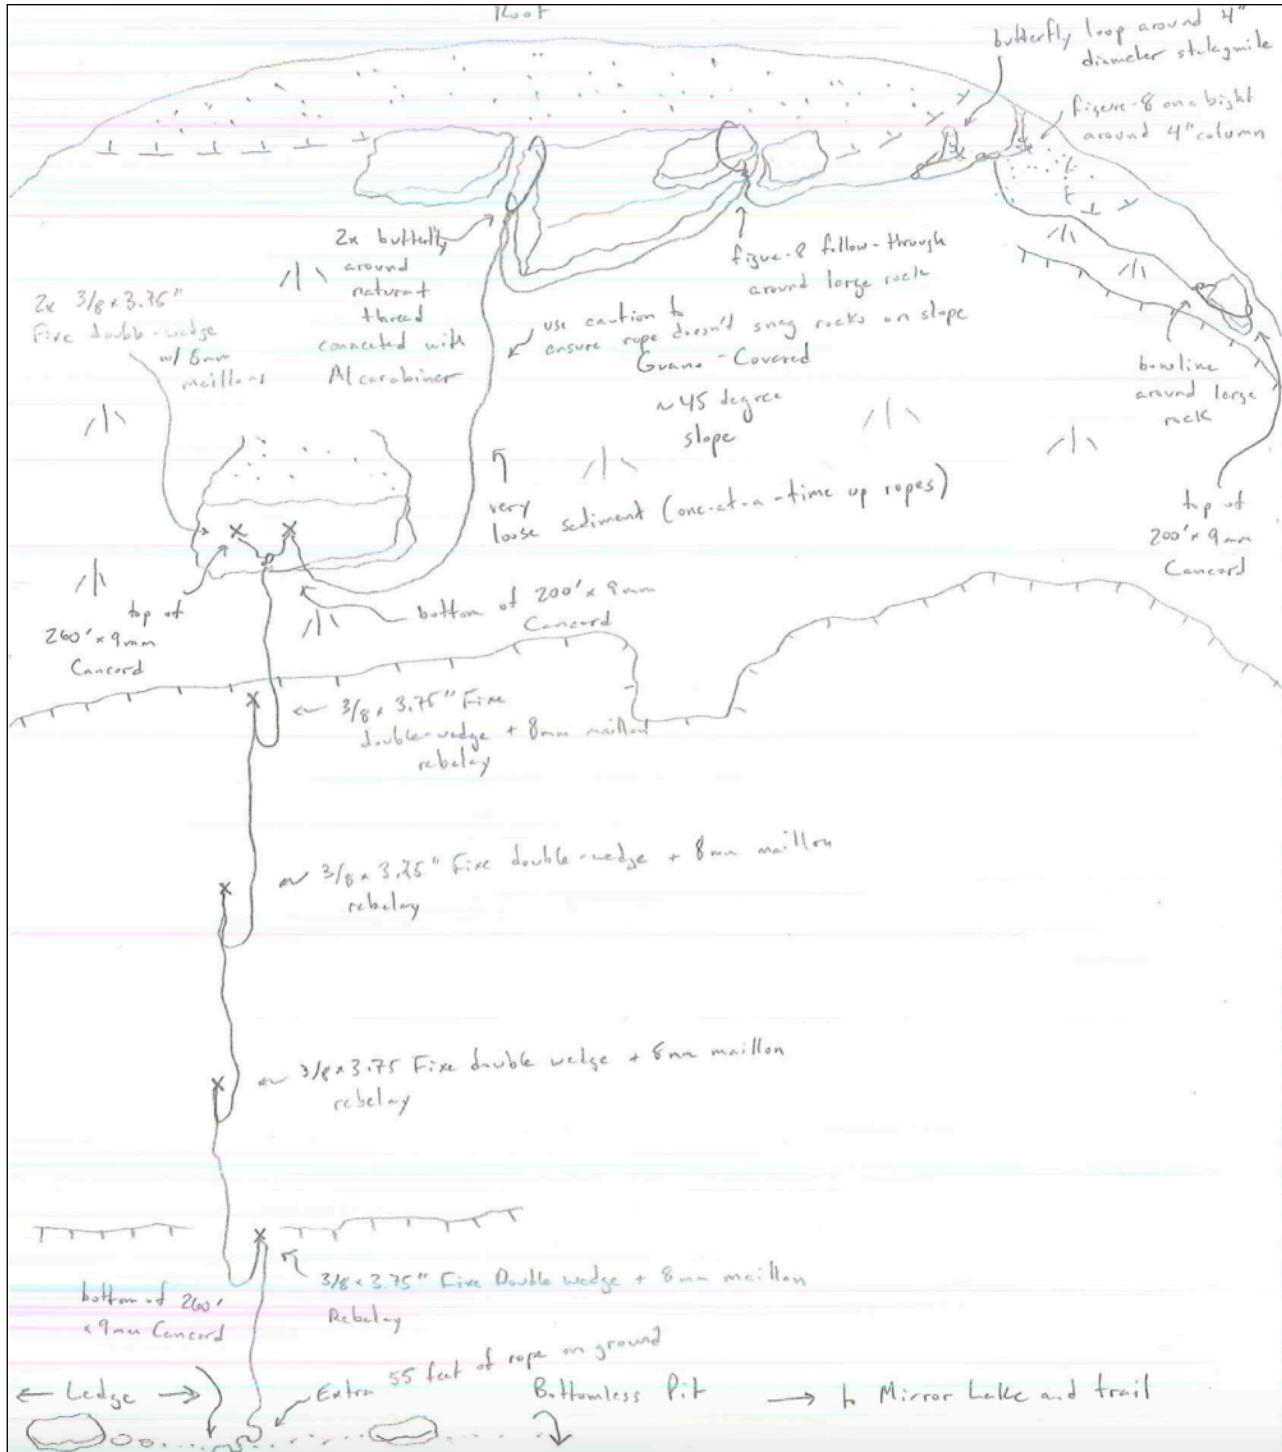 Roof
butterfly loop around 4"
diameter stalagmite
figure-8 on a bight
around 4" column
2x butterfly
around
natural
thread
connected with
Al carabiner
figure-8 follow-through
around large rock
2x 3/8 x 3.75"
Fixe double-wedge
w/ 8mm
maillons
use caution to
ensure rope doesn't snag rocks on slope
Guano-Covered
~45 degree
slope
bowline
around large
rock
very
loose sediment (one-at-a-time up ropes)
top of
200' x 9mm
Cancord
top of
260' x 9mm
Cancord
bottom of 200' x 9mm
Cancord
3/8 x 3.75" Fixe
double-wedge + 8mm maillon
rebelay
3/8 x 3.75" Fixe double-wedge + 8mm maillon
rebelay
3/8 x 3.75 Fixe double wedge + 8mm maillon
rebelay
3/8 x 3.75" Fixe Double wedge + 8mm maillon
Rebelay
bottom of 260'
x 9mm Cancord
Extra 55 feet of rope on ground
← Ledge →
Bottomless Pit
→ to Mirror Lake and trail